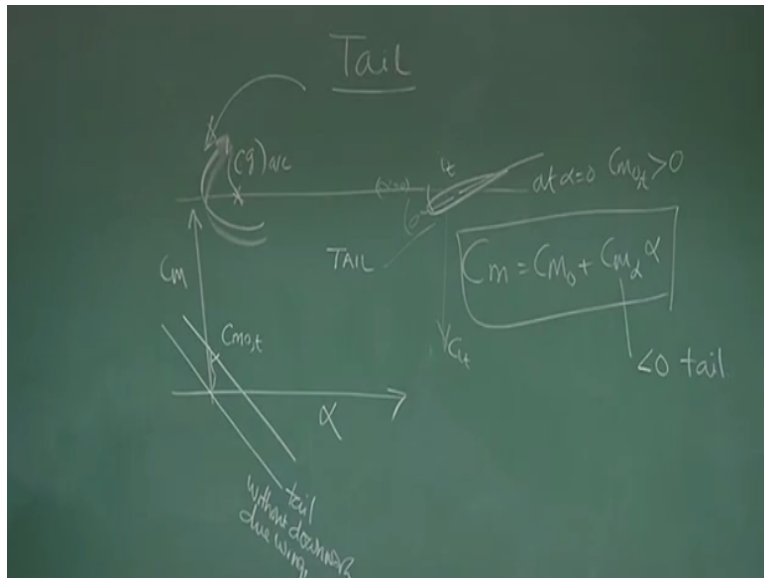 Tail
(cg) a/c
it
at α=0 Cm0,t >0
TAIL
Cm = Cm0 + Cmα α
Cm
Cm0,t
CLt
<0 tail
α
tail
without downwash
due wing,